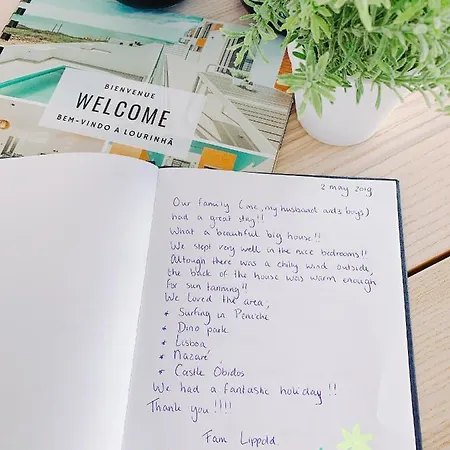 BIENVENUE
WELCOME
BEM-VINDO A LOURINHÃ
2 may 2019
Our family (me, my husband and 3 boys)
had a great stay!!
What a beautiful big house!!
We slept very well in the nice bedrooms!!
Altough there was a chilly wind outside,
the back of the house was warm enough
for sun tanning!!
We loved the area;
* Surfing in Peniche
* Dino park
* Lisboa
* Nazaré
* Castle Óbidos
We had a fantastic holiday!!
Thank you!!!!
Fam Lippold